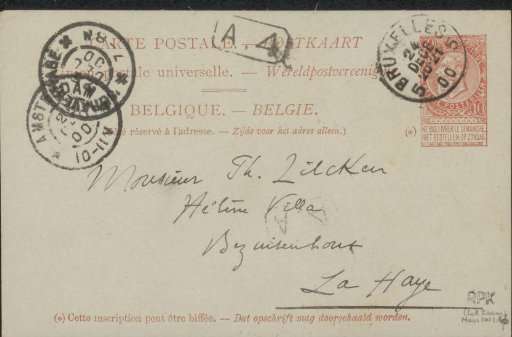 CARTE POSTALE. — POSTKAART
Union postale universelle. — Wereldpostvereeniging
BELGIQUE. — BELGIE.
Côté réservé à l'adresse. — Zijde voor het adres alleen.) (*)
A
BRUXELLES 5
24
DEC
20-21
00
5
10
NE PAS LIVRER LE DIMANCHE
NIET BESTELLEN OP ZONDAG
'S GRAVENHAGE
7-8 V
AMSTERDAM
Monsieur Th. Zilcken
Hélène Villa
Bezuidenhout
La Haye
RPK
(*) Cette inscription peut être biffée. — Dat opschrift mag doorgehaald worden.